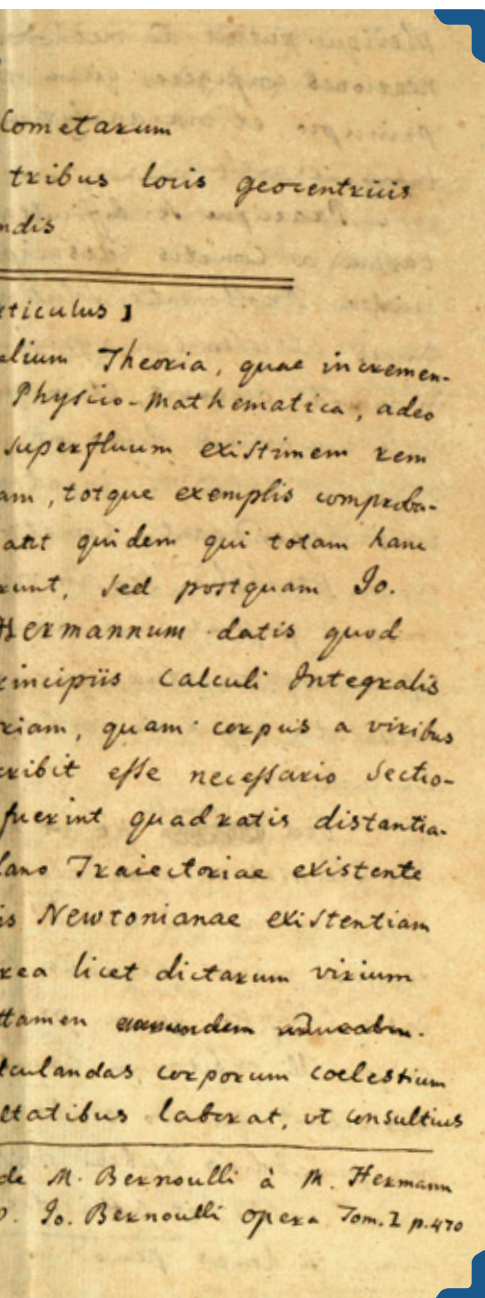 Cometarum
tribus locis geocentricis
ndis
rticulus 1
alium Theoria, quae incremen-
Physico-Mathematica, adeo
superfluum existimem rem
am, totque exemplis comproba-
quidem qui totam hanc
runt, sed postquam Io.
Hermannum datis quod
rincipiis Calculi Integralis
riam, quam corpus a viribus
cribit esse necessario Sectio-
fuerint quadratis distantia-
lano Traiectoriae existente
is Newtonianae existentiam
rea licet dictarum virium
ttamen
lculandas corporum coelestium
ltatibus laborat, ut consultius
de M. Bernoulli à M. Hermann
Io. Bernoulli opera Tom. I p. 470